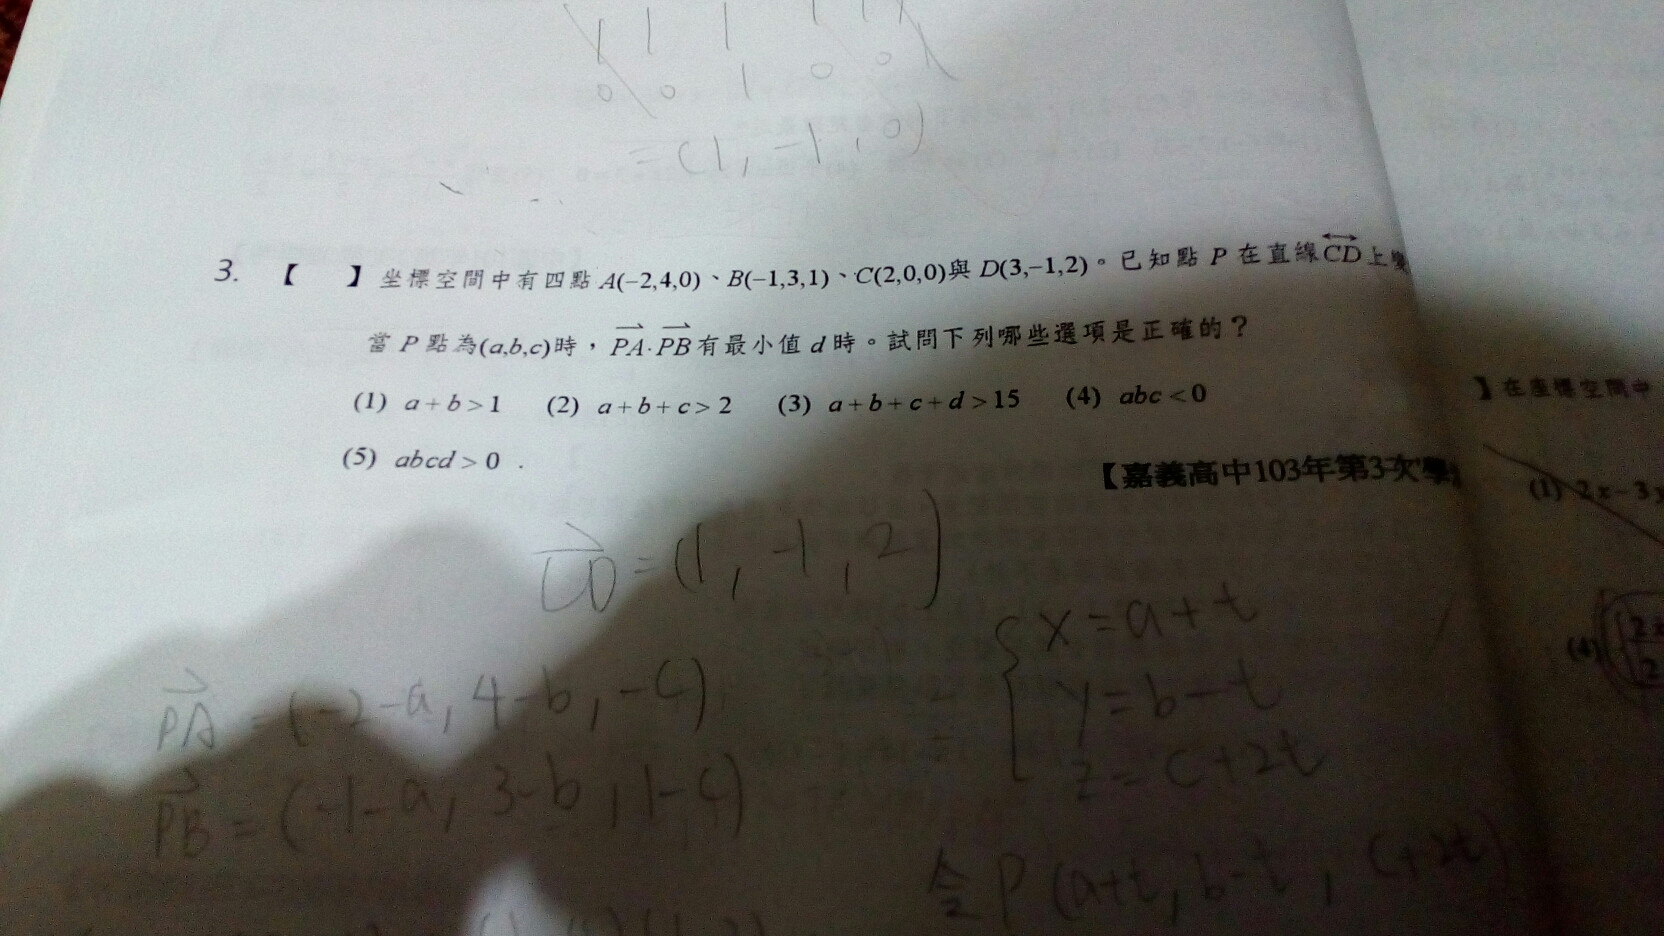 1 1 1 1 1
0 0 1 0 0
=(1,-1,0)
3. 【 】坐標空間中有四點 A(−2,4,0)、B(−1,3,1)、C(2,0,0)與 D(3,−1,2)。已知點 P 在直線 CD 上變
當 P 點為(a,b,c)時，PA·PB 有最小值 d 時。試問下列哪些選項是正確的？
(1) a+b>1 (2) a+b+c>2 (3) a+b+c+d>15 (4) abc<0
(5) abcd>0 .
【嘉義高中103年第3次
CD=(1,-1,2)
PA=(-2-a,4-b,-c)
PB=(-1-a,3-b,1-c)
x=a+t
y=b-t
z=c+2t
令P(a+t,b-t,c+2t)
】在座標空間中
(1) 2x−3y
(4)